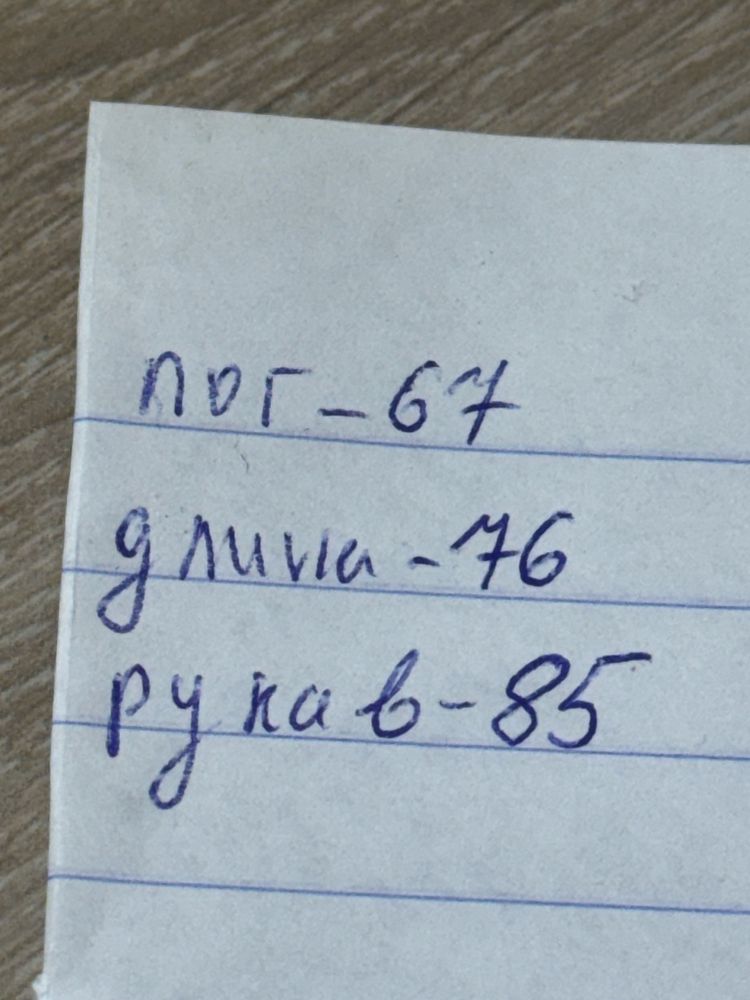 пог - 67
длина - 76
рукав - 85